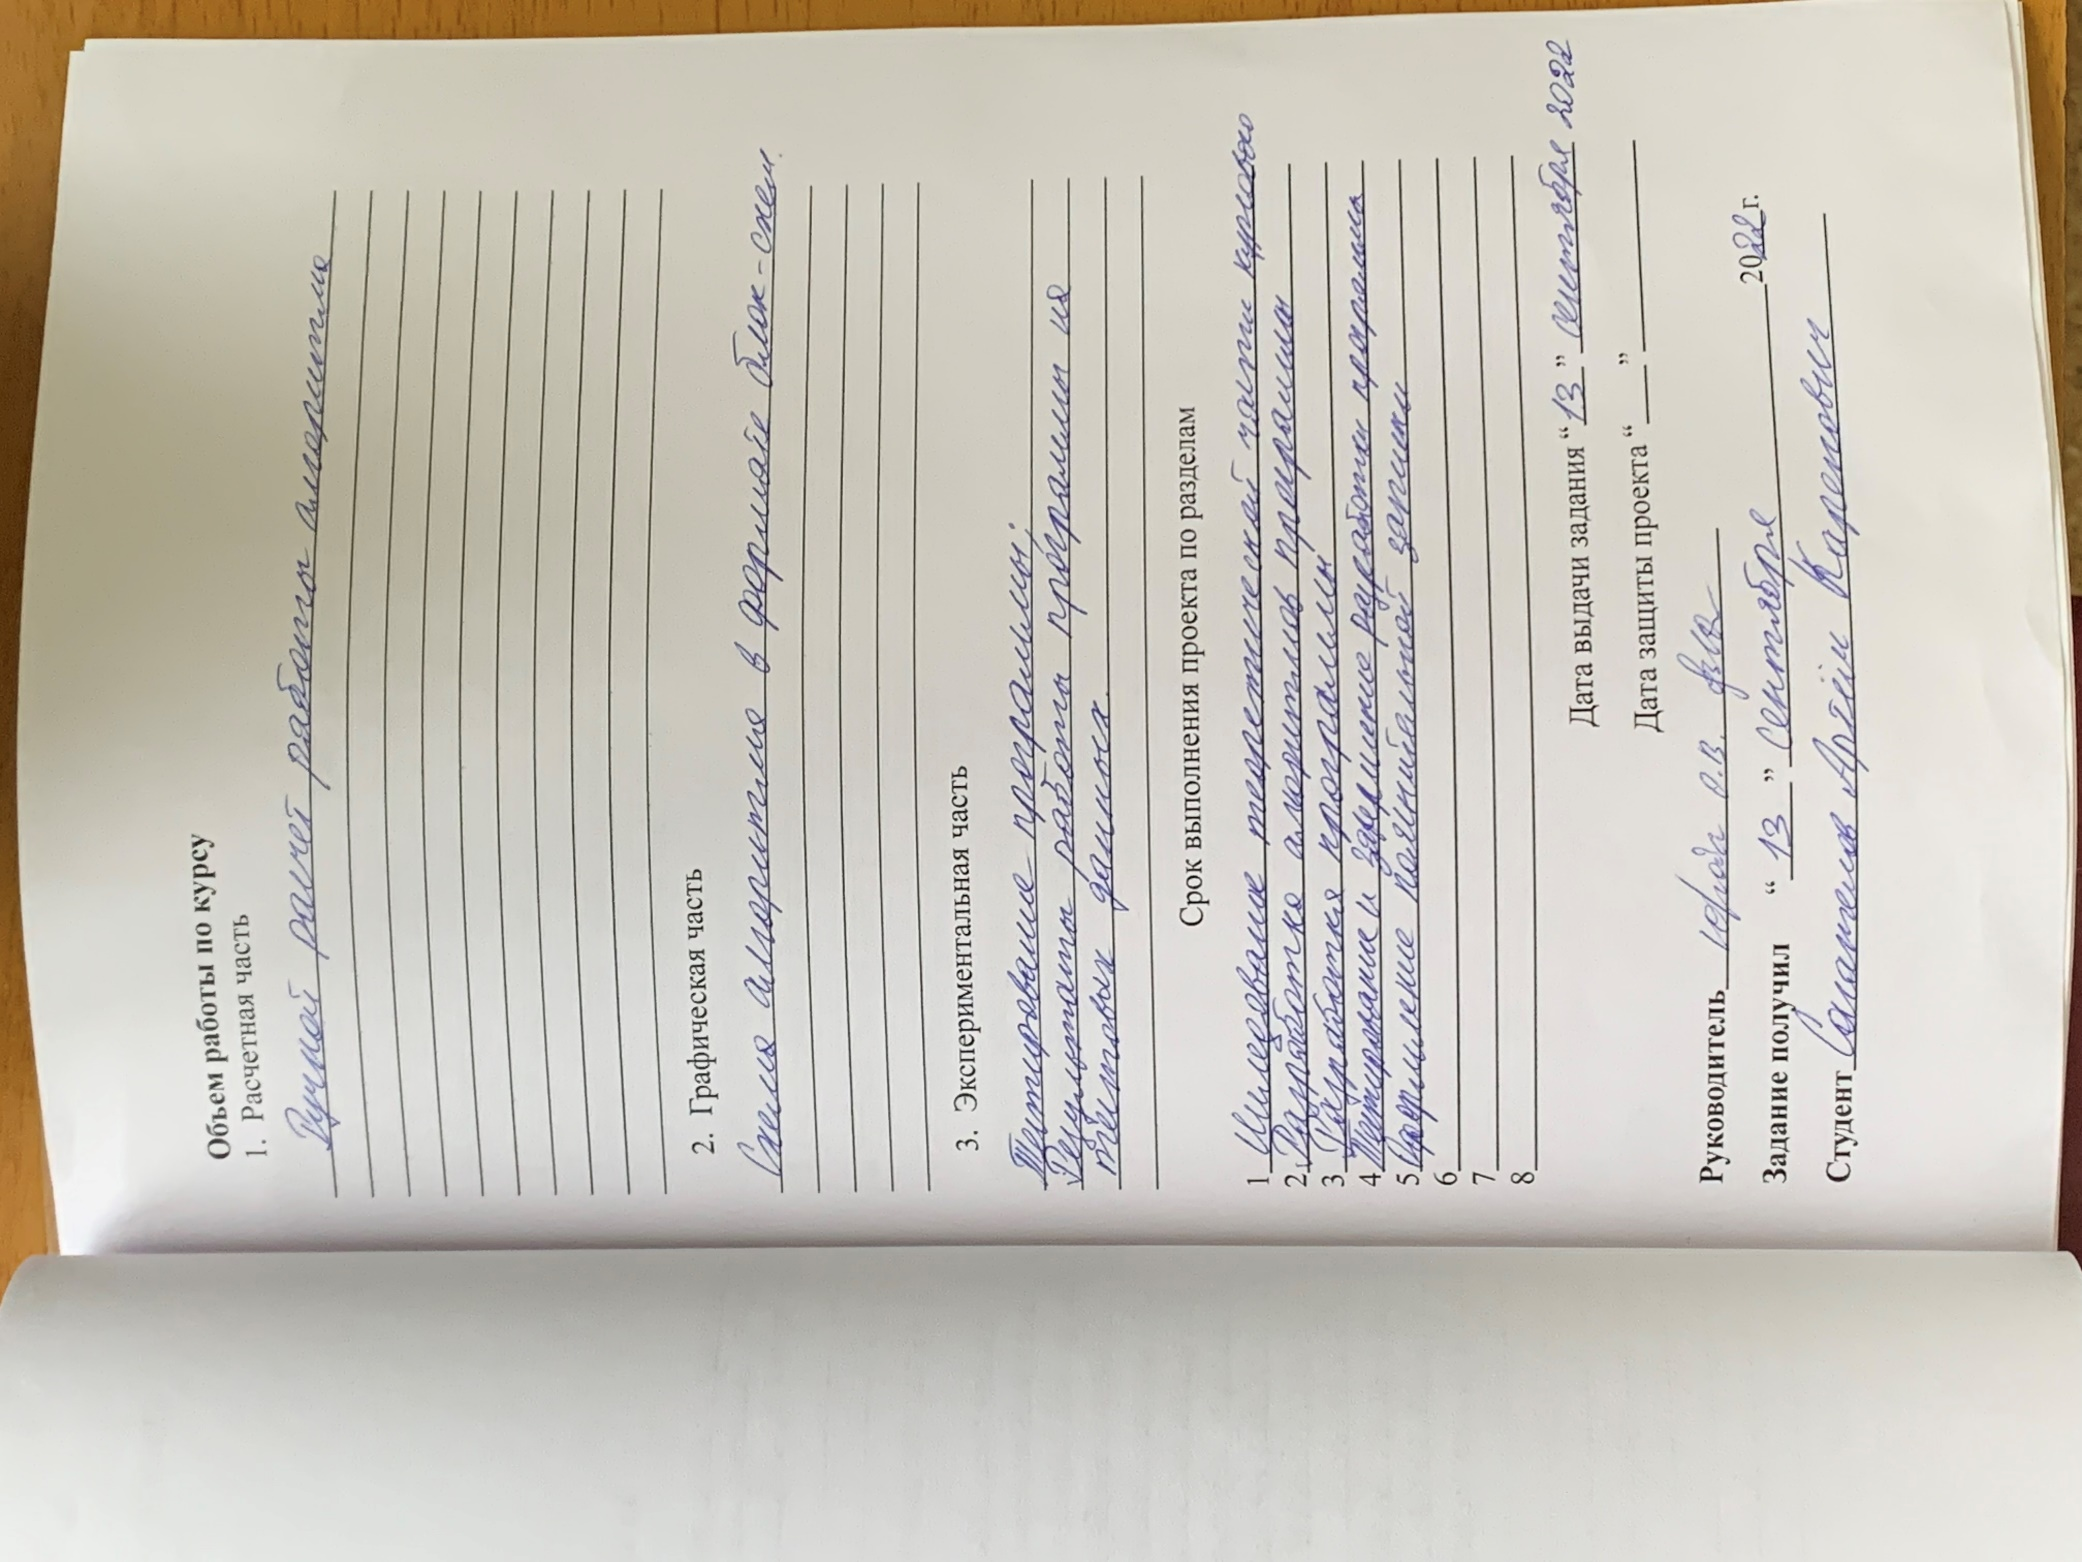 Объем работы по курсу
1. Расчетная часть
Ручной расчет работы алгоритма
2. Графическая часть
Схема алгоритма в формате блок-схем.
3. Экспериментальная часть
Тестирование программы;
Результаты работы программы на
тестовых данных.
Срок выполнения проекта по разделам
1 Исследование теоретической части курсового
2 Разработка алгоритмов программы
3 Разработка программы
4 Тестирование и завершение разработки программы
5 Оформление пояснительной записки
6
7
8
Дата выдачи задания “13” сентября 2022
Дата защиты проекта “ ”
Руководитель
Задание получил “13” Сентября 2022г.
Студент Артём Каренович